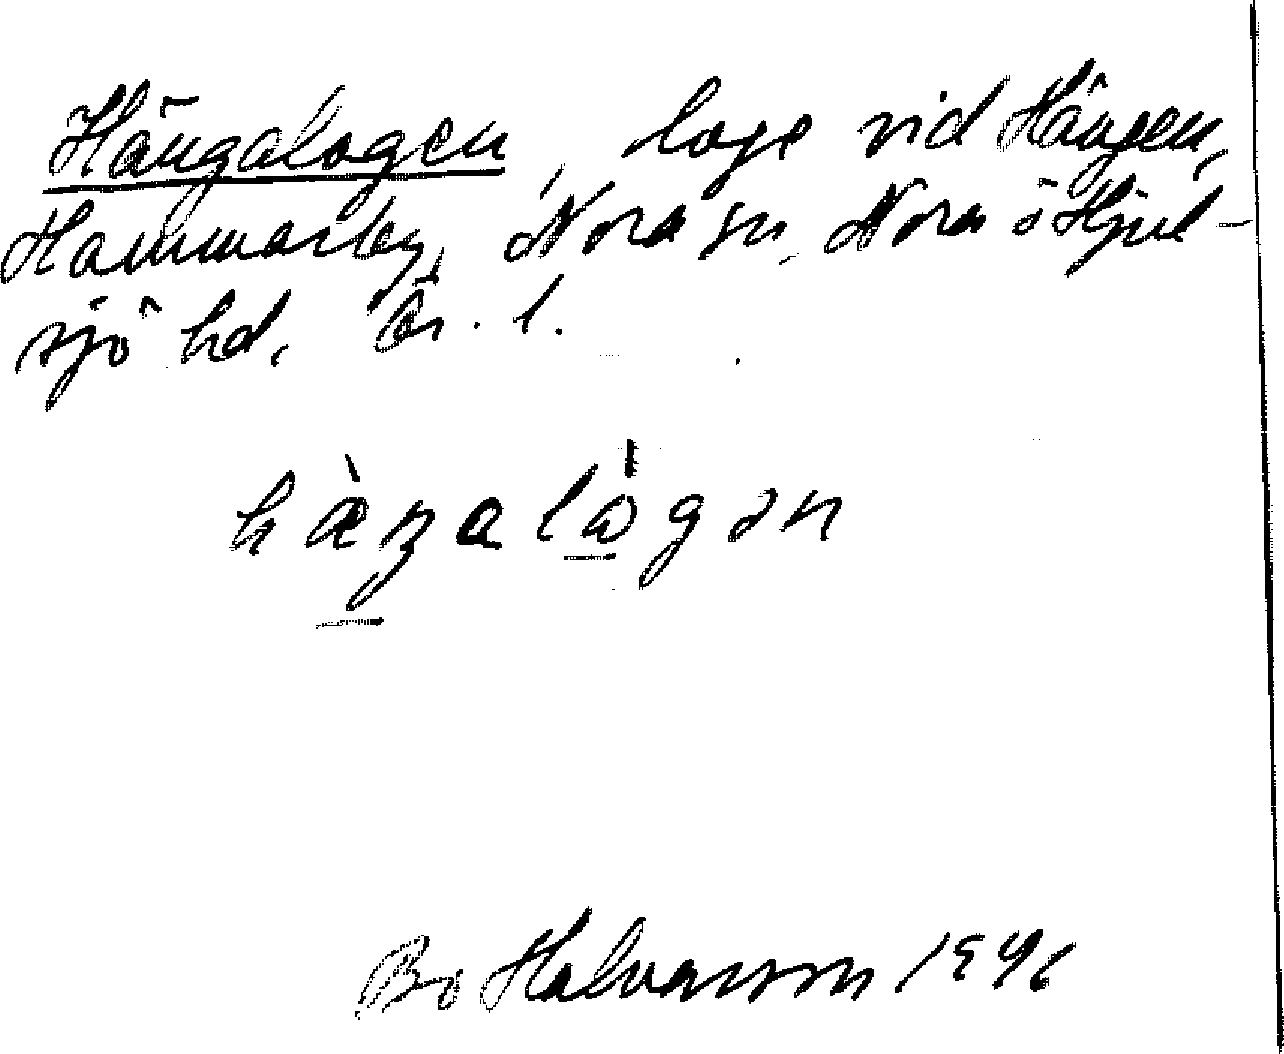 Hängalogen, loge vid Hängen,
Hammarby, Nora sn, Nora o Hjul-
sjö hd, Ör. l.
hæ̀ŋalògən
Bo Halvarson 1946